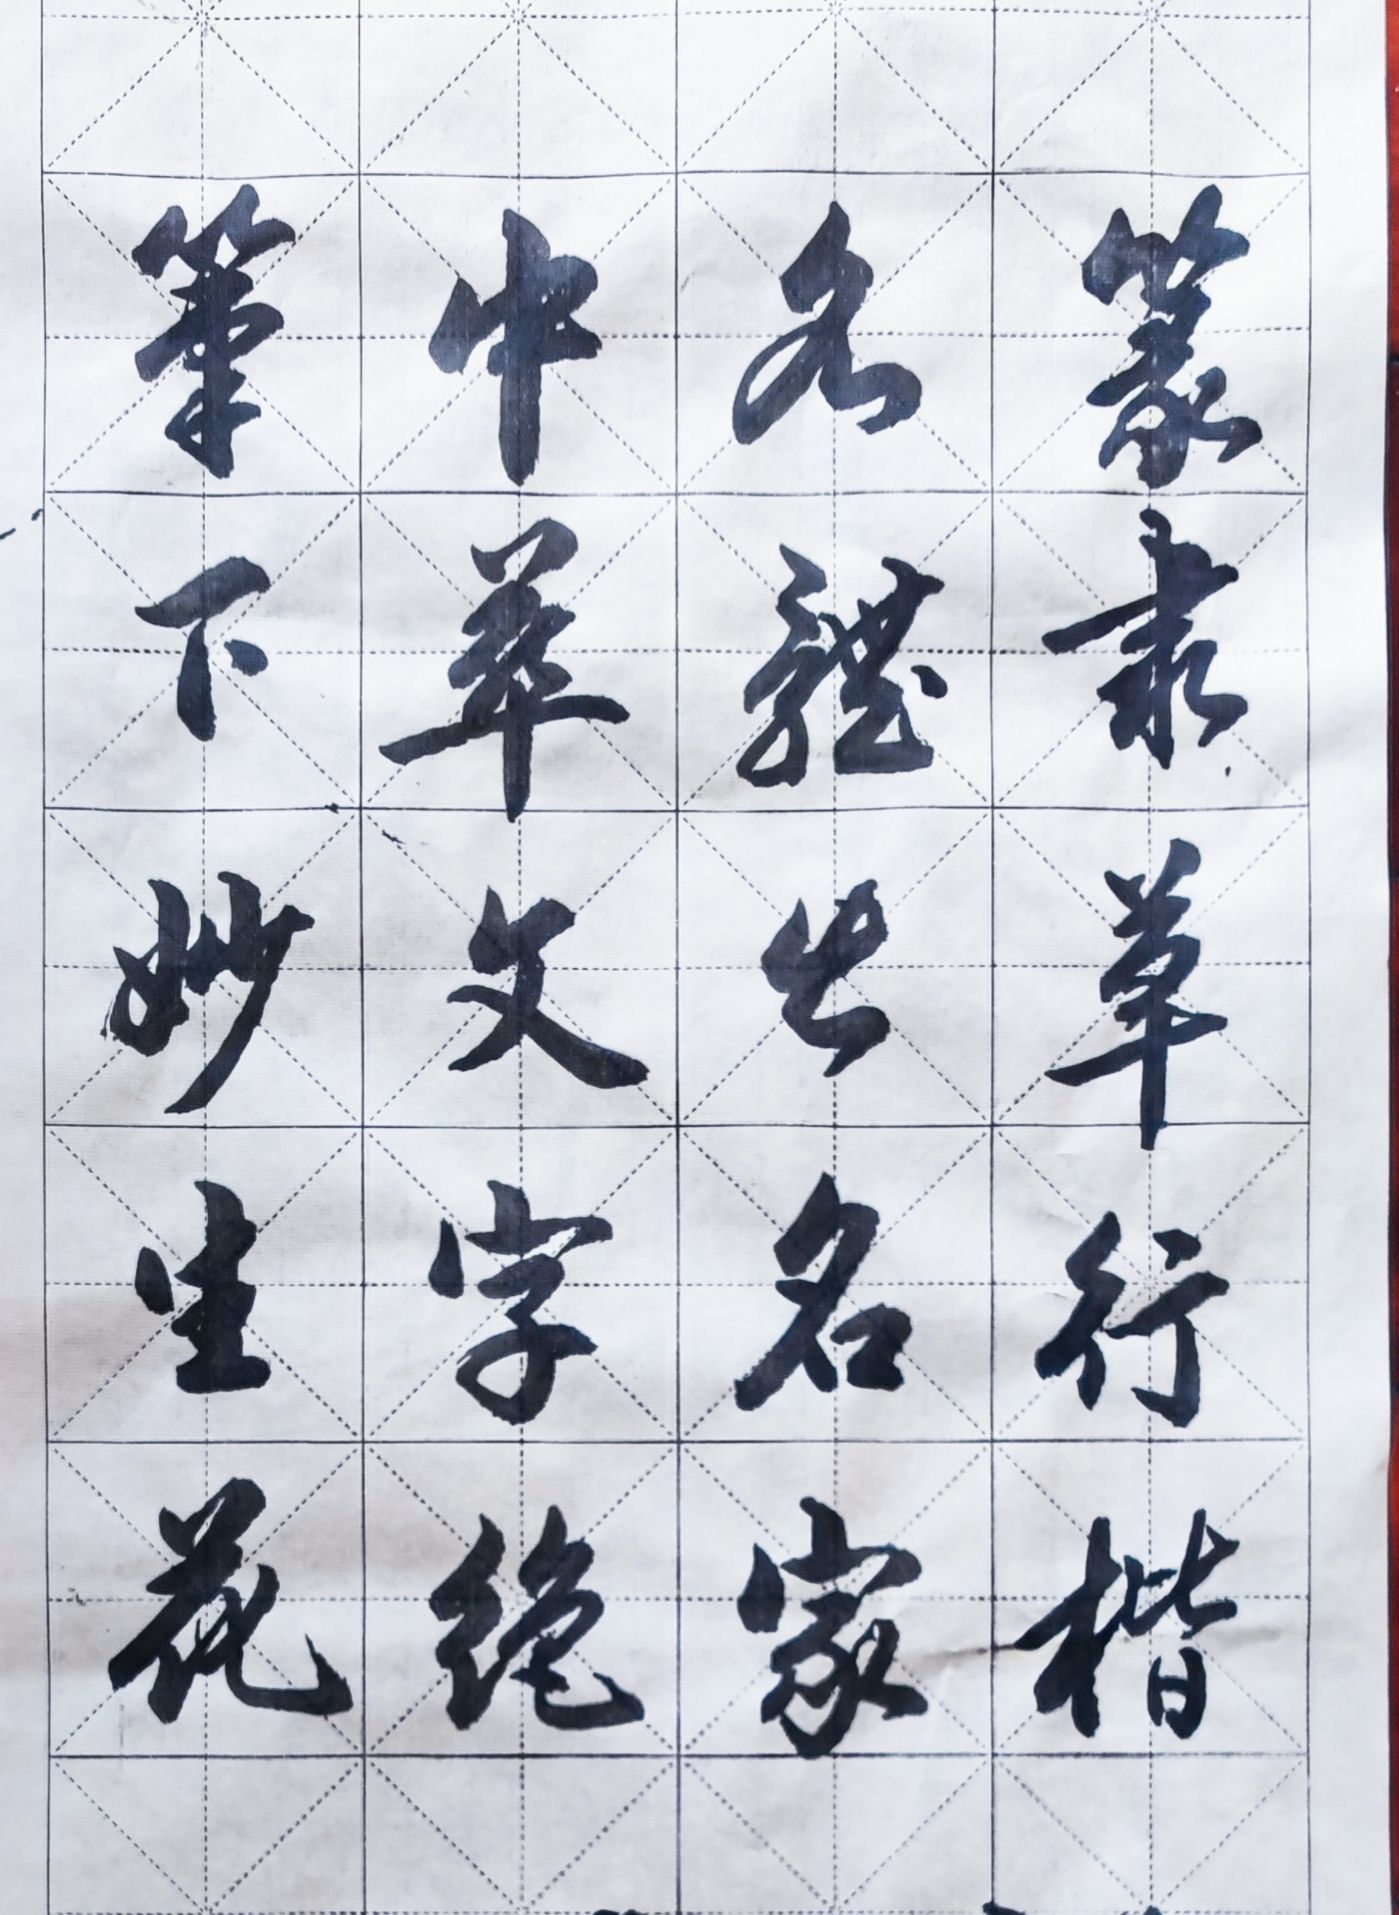 篆隶草行楷
各體出名家
中華文字绝
筆下妙生花